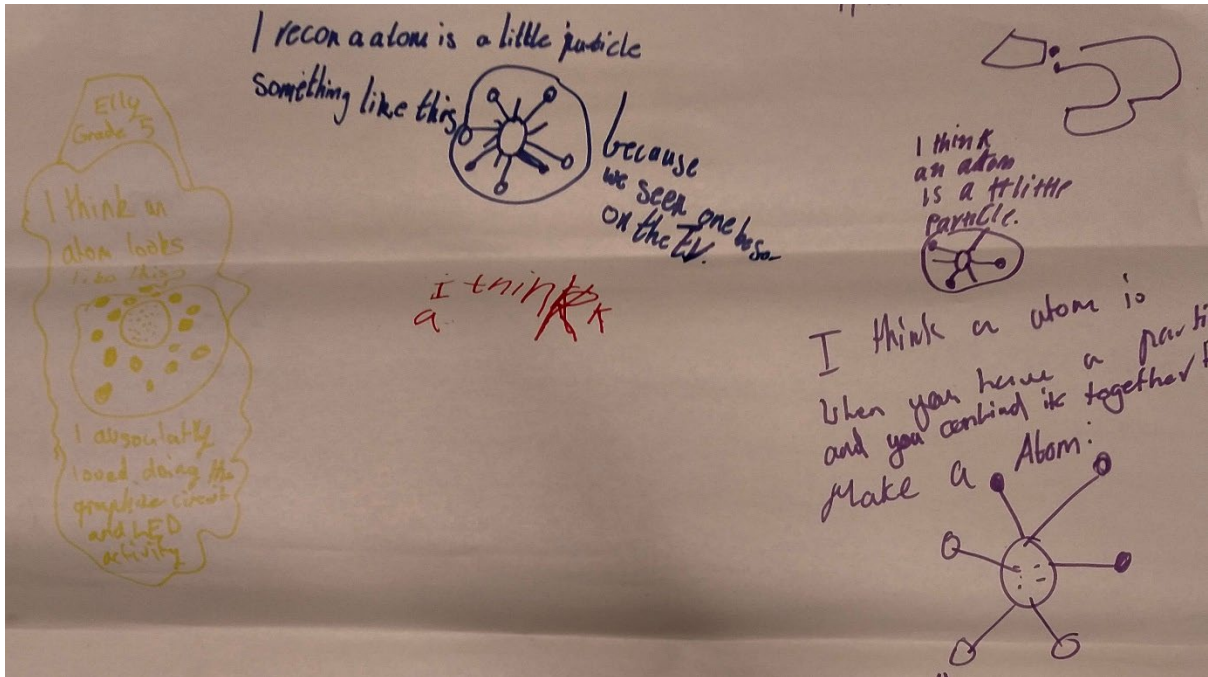 Elly
Grade 5
I think an
atom looks
like this
I absoulatly
loved doing the
graphite circuit
and LED
activity
I recon a atom is a little particle
something like this
because
we seen one
on the TV.
I think
a
k
I think
an atom
is a ttlittle
particle.
I think a atom is
when you have a parti
and you combind it together
Make a Atom: